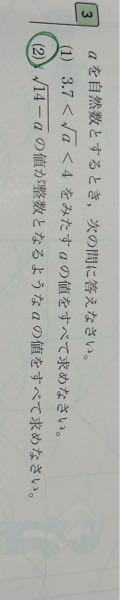 3
aを自然数とするとき，次の問に答えなさい。
(1) 3.7 < √a < 4 をみたすaの値をすべて求めなさい。
(2) √14−a の値が整数となるようなaの値をすべて求めなさい。